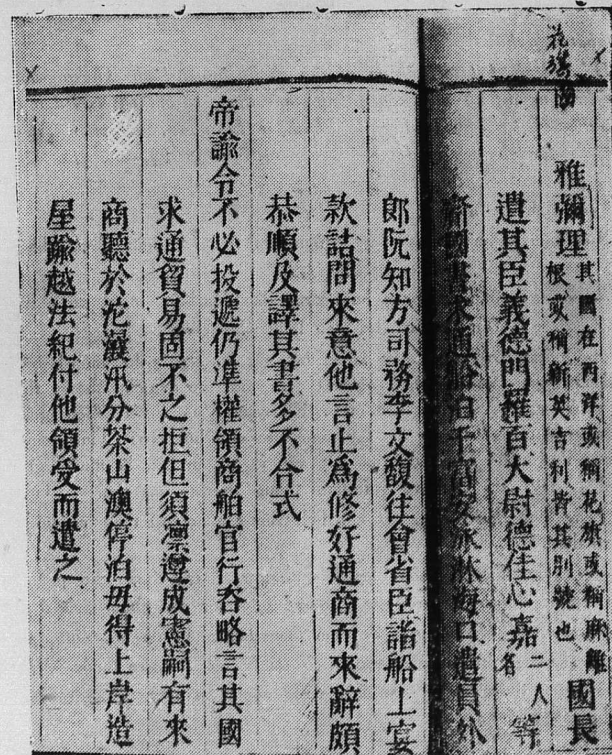 花旗國
雅彌理其國在西洋或稱花旗或稱麻離根或稱新英吉利皆其別號也國長
遣其臣義德門羅百大尉德佳心嘉二人名等
齎國書求通船泊于富安沬淋海口遣員外
郎阮知方司務李文馥往會省臣詣船上宴
款詰問來意他言止為修好通商而來辭頗
恭順及譯其書多不合式
帝諭令不必投遞仍準權領商舶官行咨略言其國
求通貿易固不之拒但須凛遵成憲嗣有來
商聽於沱㶞汛分茶山澳停泊毋得上岸造
屋踰越法紀付他領受而遣之